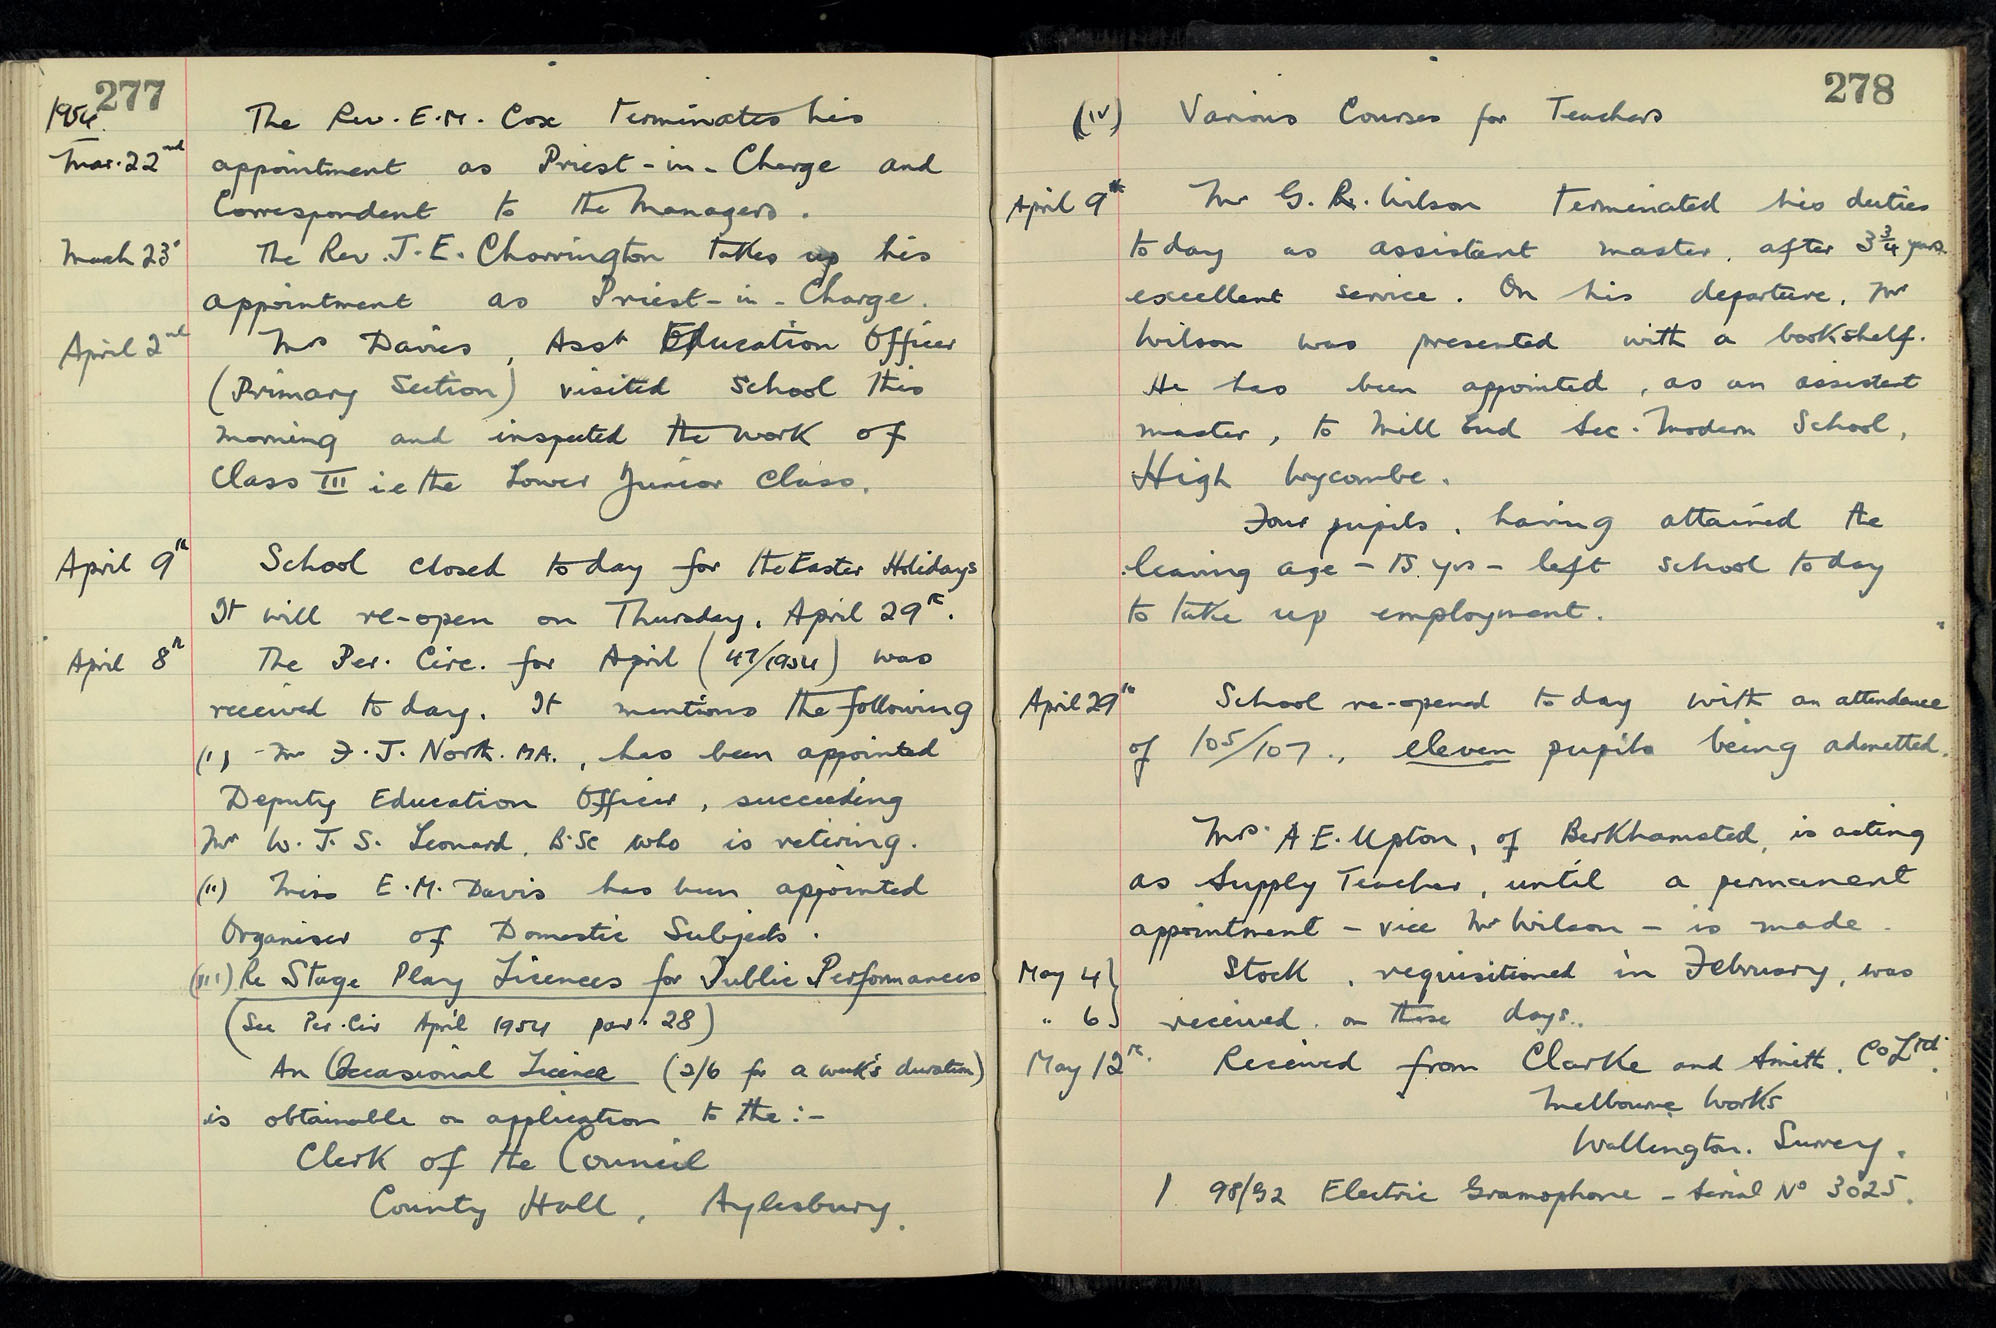 277
1954.
Mar. 22nd The Rev. E.M. Cox terminates his
appointment as Priest-in-Charge and
Correspondent to the Managers.
March 23rd The Rev. J.E. Chorrington takes up his
appointment as Priest-in-Charge.
April 2nd Mrs Davies, Asst Education Officer
(Primary Section) visited School this
morning and inspected the work of
Class III i.e the Lower Junior Class.
April 9th School closed today for the Easter Holidays
It will re-open on Thursday, April 29th.
April 8th The Per. Circ. for April (47/1954) was
received today. It mentions the following
(i) Mr F.J. North. MA., has been appointed
Deputy Education Officer, succeeding
Mr W.J.S. Leonard, B.Sc who is retiring.
(ii) Miss E.M. Davis has been appointed
Organiser of Domestic Subjects.
(iii) Re Stage Play Licences for Public Performances
(See Per. Cir April 1954 par. 28)
An Occasional Licence (2/6 for a week's duration)
is obtainable on application to the:-
Clerk of the Council
County Hall, Aylesbury.
278
(iv) Various Courses for Teachers
April 9th Mr G.R. Wilson terminated his duties
today as assistant master, after 3 3/4 years
excellent service. On his departure, Mr
Wilson was presented with a bookshelf.
He has been appointed, as an assistant
master, to Mill End Sec. Modern School,
High Wycombe.
Four pupils, having attained the
leaving age - 15 yrs - left school today
to take up employment.
April 29th School re-opened today with an attendance
of 105/107., eleven pupils being admitted.
Mrs. A.E. Upton, of Berkhamsted, is acting
as Supply Teacher, until a permanent
appointment - vice Mr Wilson - is made.
May 4 } Stock, requisitioned in February, was
" 6 } received on these days.
May 12th. Received from Clarke and Smith. Co Ltd.
Melbourne Works
Wallington. Surrey.
1 98/92 Electric Gramophone - Serial No 3025.